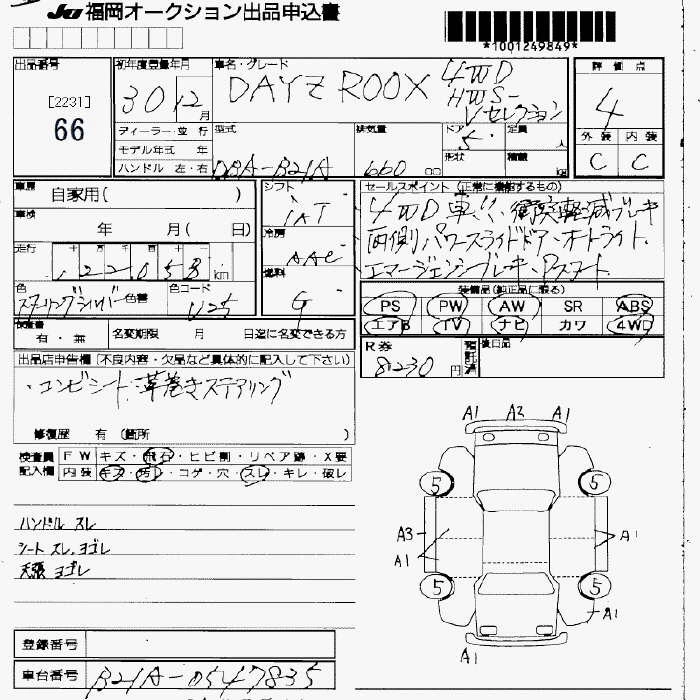 JU 福岡オークション出品申込書
*1001249849*
出品番号 [2231] 66
初年度登録年月 30 12 月
車名・グレード DAYZ ROOX 4WD HWS-Vセレクション
評価点 4
外装 内装
C C
ディーラー・並行
モデル年式 年
ハンドル 左・右
型式 DBA-B21A
排気量 660 cc
ドア 5
形状
定員 人
積載 kg
車歴 自家用( )
車検 年 月( 日)
走行 122058 km
色 スターリングシルバー 色替
色コード
シフト IAT
冷房 AAC
燃料 G
セールスポイント (正常に機能するもの)
4WD車で、衝突軽減ブレーキ
両側パワースライドドア、オートライト、
エマージェンシーブレーキ、
装備品(純正品に限る)
PS PW AW SR ABS
エアB TV ナビ カワ 4WD
検査書 有・無
名変期限 月 日迄に名変できる方
R券 8230 円
預託済
後日品
出品店申告欄 (不良内容・欠品など具体的に記入して下さい)
・コンビシート、革巻きステアリング
修復歴 有 (箇所 )
検査員記入欄
FW キズ・飛石・ヒビ割・リペア跡・X要
内装 キズ・汚レ・コゲ・穴・スレ・キレ・破レ
ハンドル スレ
シート スレ、ヨゴレ
天張 ヨゴレ
A1 A3 A1
5 5
A3 A1 A1
5 5
A1
A1
登録番号
車台番号 B21A-0547835